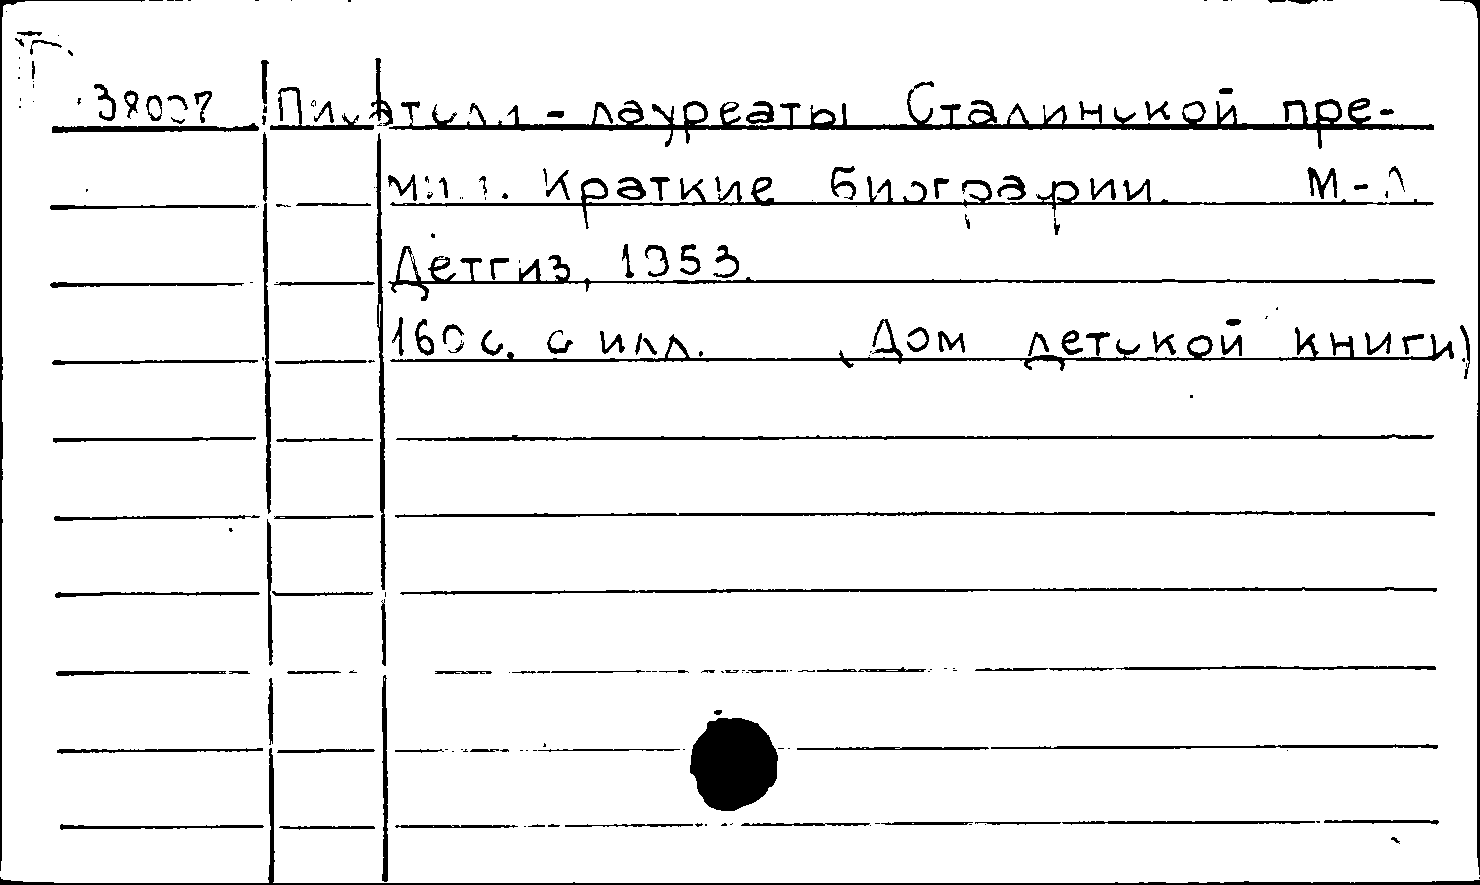 38007 Писатели - лауреаты Сталинской пре-
мии. Краткие биографии. М.-Л.
Детгиз, 1953.
160 с. с илл. (Дом детской книги)